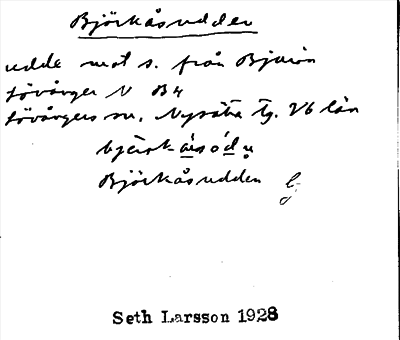 Björkåsudden
udde mot s. från Björkön
Lövånger N B4
Lövångers sn. Nysätra tg. Vb län
bjérk-åsód
Björkåsudden
Seth Larsson 1928